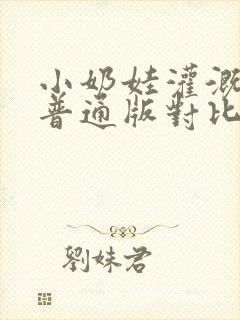 小奶娃灌溉
普通版對比
劉妹君